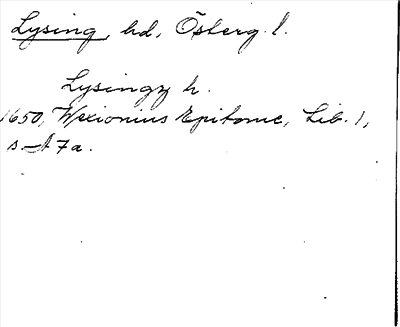 Lysing, hd, Österg. l.
Lysingz h.
1650, Wexionius Epitome, Lib. 1,
s. A 7a.